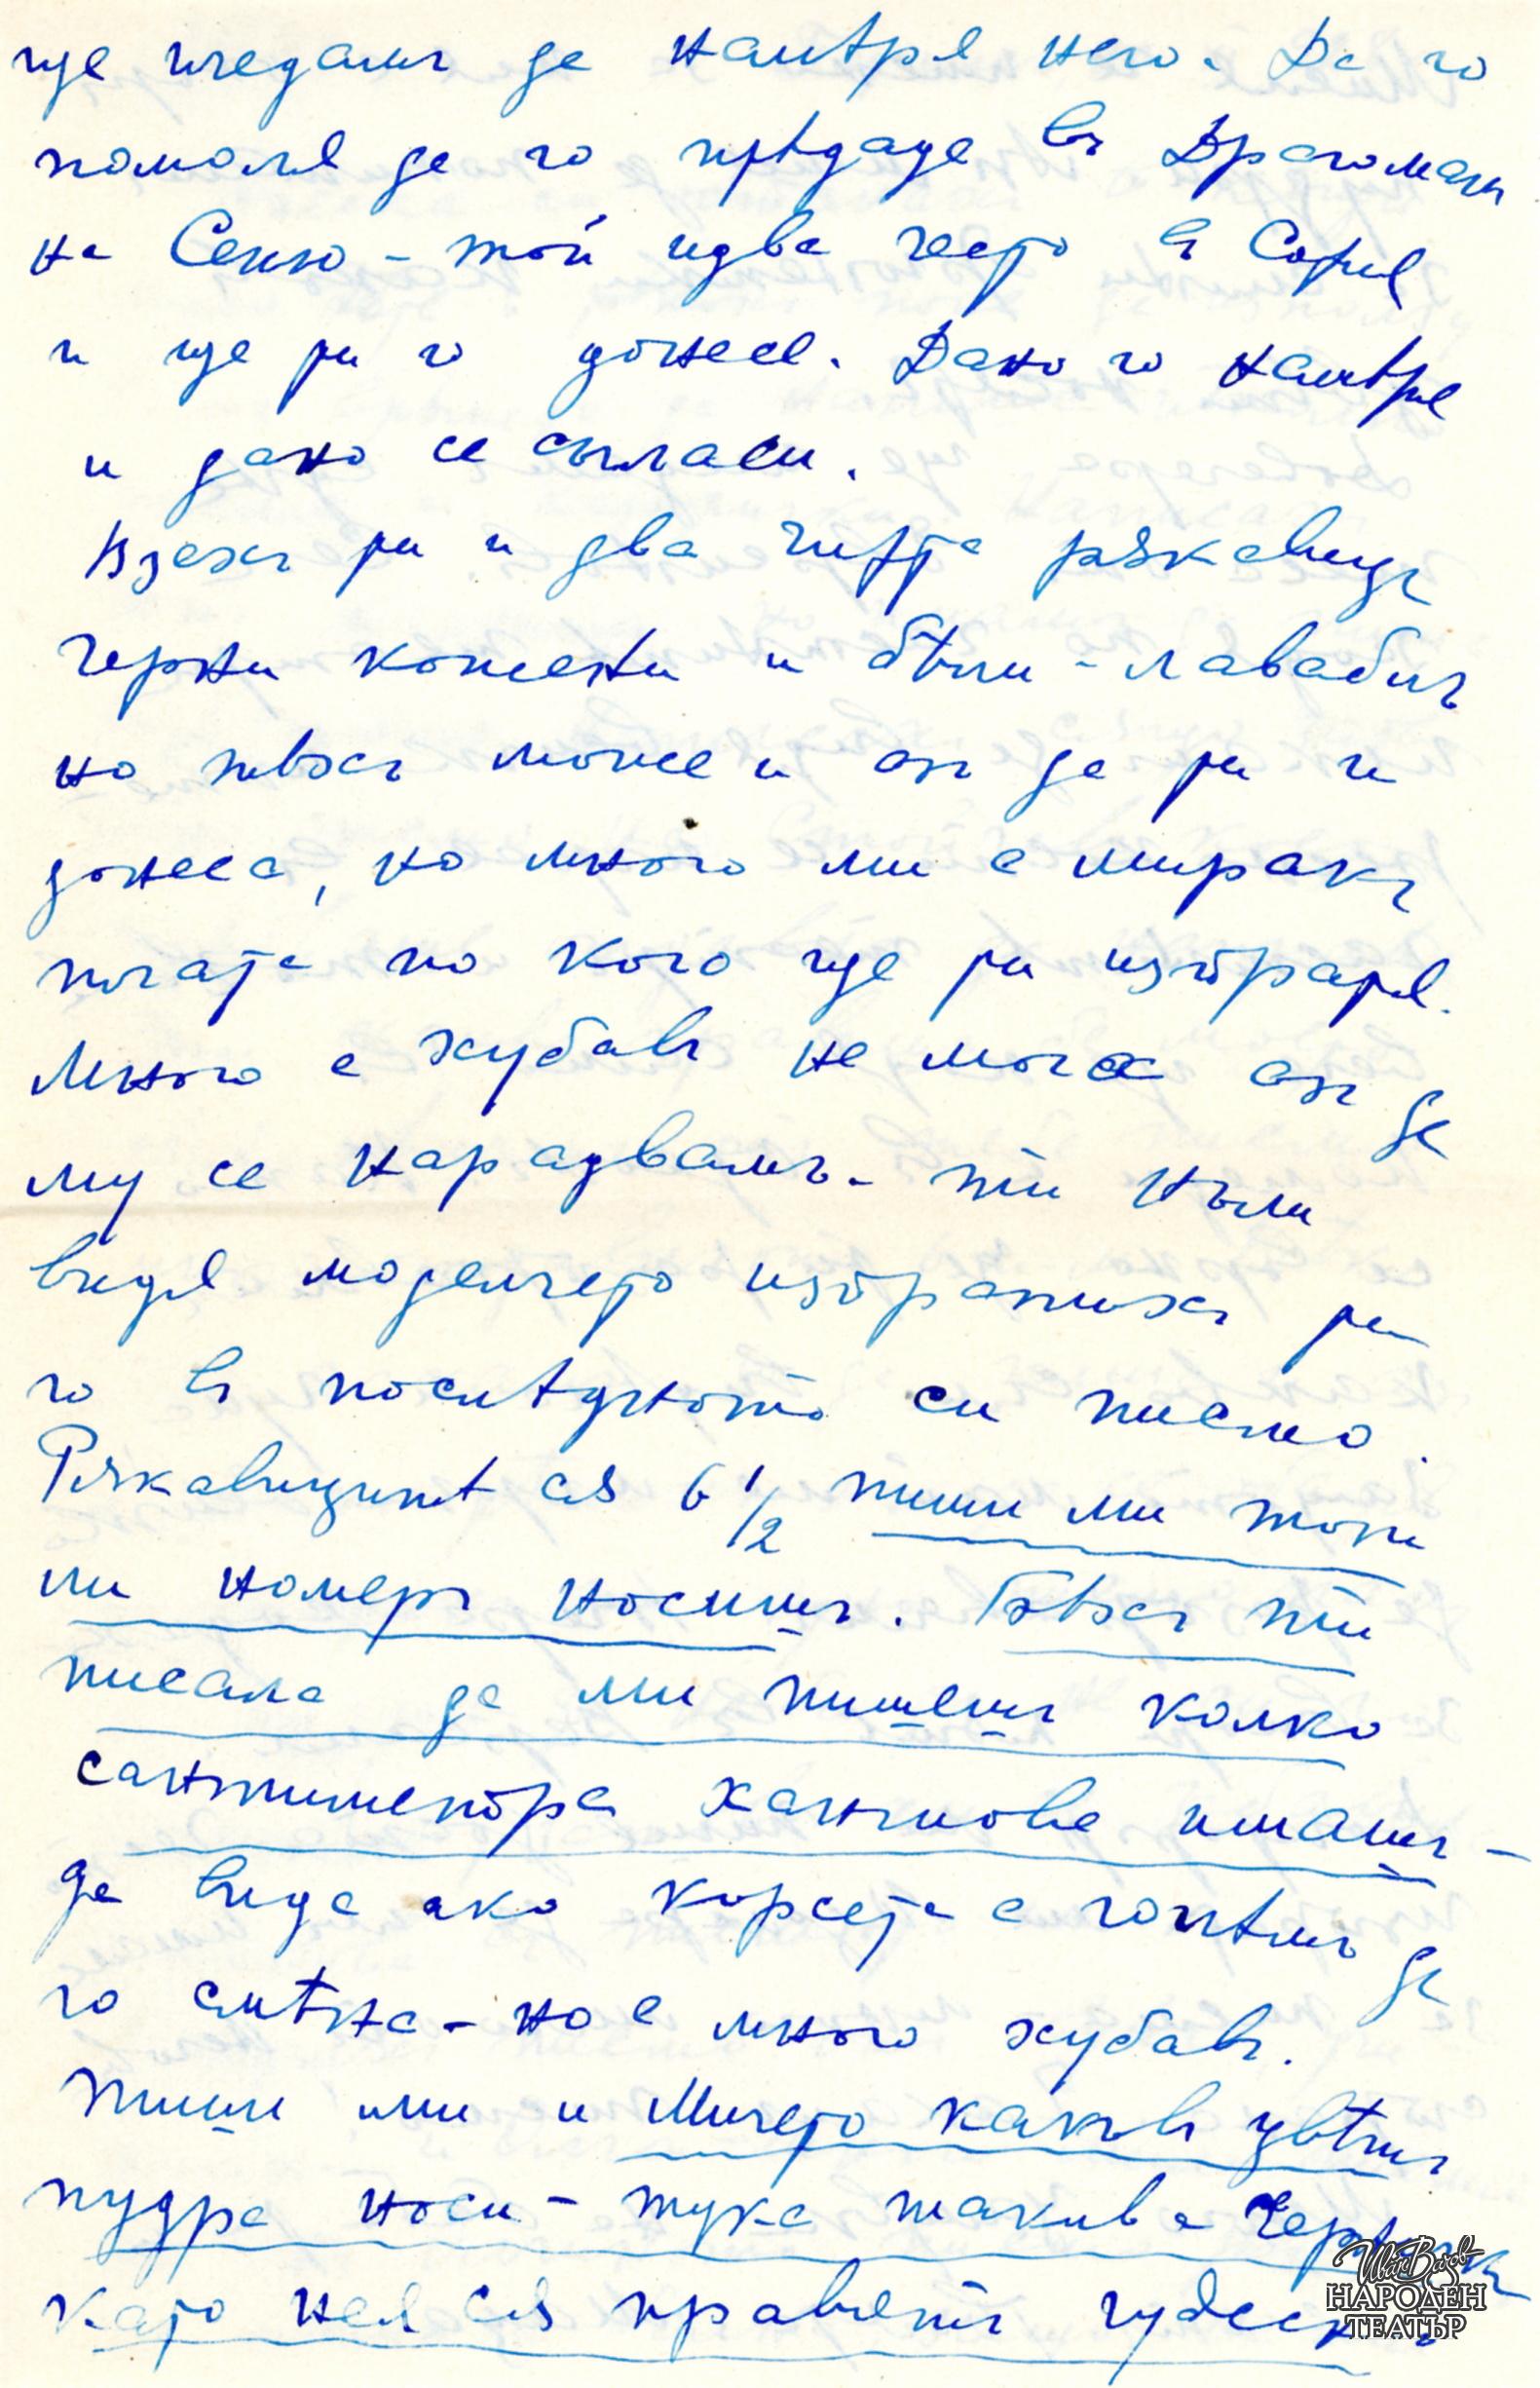 ще гледамъ да намѣря него. Да го
помоля да го прѣдаде въ Драгоманъ
на Сеню – той идва често въ София
и ще ти го донесе. Дано го намѣря
и дано се съгласи.
Взехъ ти и два чифта рѫкавици
черни кожени и бѣли – лавабъл
но тѣхъ може и азъ да ти ги
донеса, но много ми е миракъ
погато по кого ще ти изпратя.
Много е хубавъ не мога азъ да
му се нарадвамъ – ти нъли
видя моделчето изпратихъ ти
го въ послѣдното си писмо.
Рѫкавицитѣ сѫ 6 1/2 пиши ми този
ли номеръ носишъ. Бѣхъ ти
писала да ми пишешъ колко
сантиметра ханшове имашъ –
да видя ако корсета е голѣмъ да
го смѣня – но е много хубавъ.
Пиши ми и Мичето какъвъ цвѣтъ
пудра носи – тука такива черни
като нея сѫ правятъ чудесни
Иван Вазов
НАРОДЕН
ТЕАТЪР